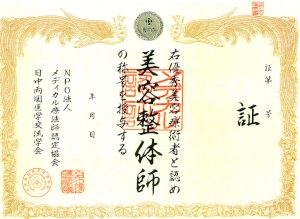 証
証第　号
右優秀美容療術者と認め
美容整体師
の称号を授与する
年　月　日
NPO法人
メディカル療法師認定協会
日中両国医学交流学会